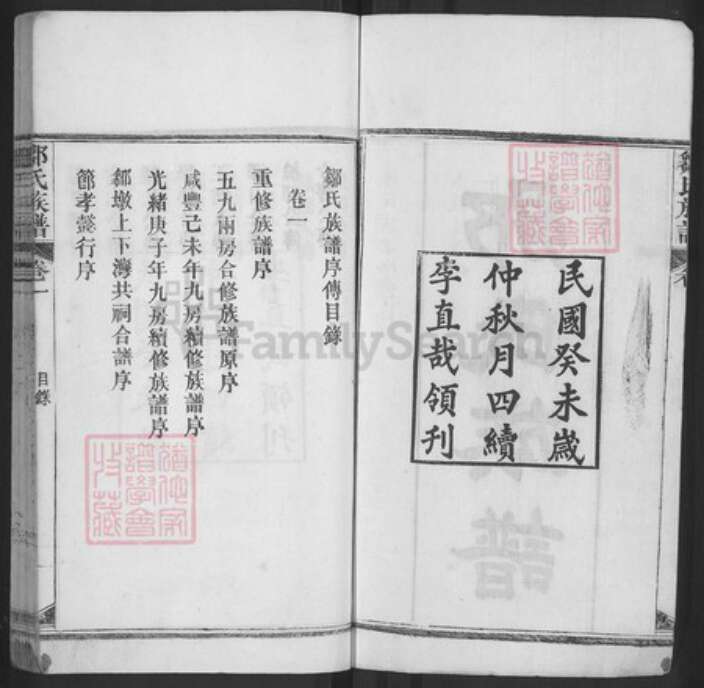 鄒氏族譜
民國癸未歲
仲秋月四續
李直哉領刊
鄒氏族譜序傳目錄
卷一
重修族譜序
五九兩房合修族譜原序
咸豐己未年九房續修族譜序
光緒庚子年九房續修族譜序
鄒墩上下灣共祠合譜序
節孝懿行序
鄒氏族譜
卷一
目錄
FamilySearch